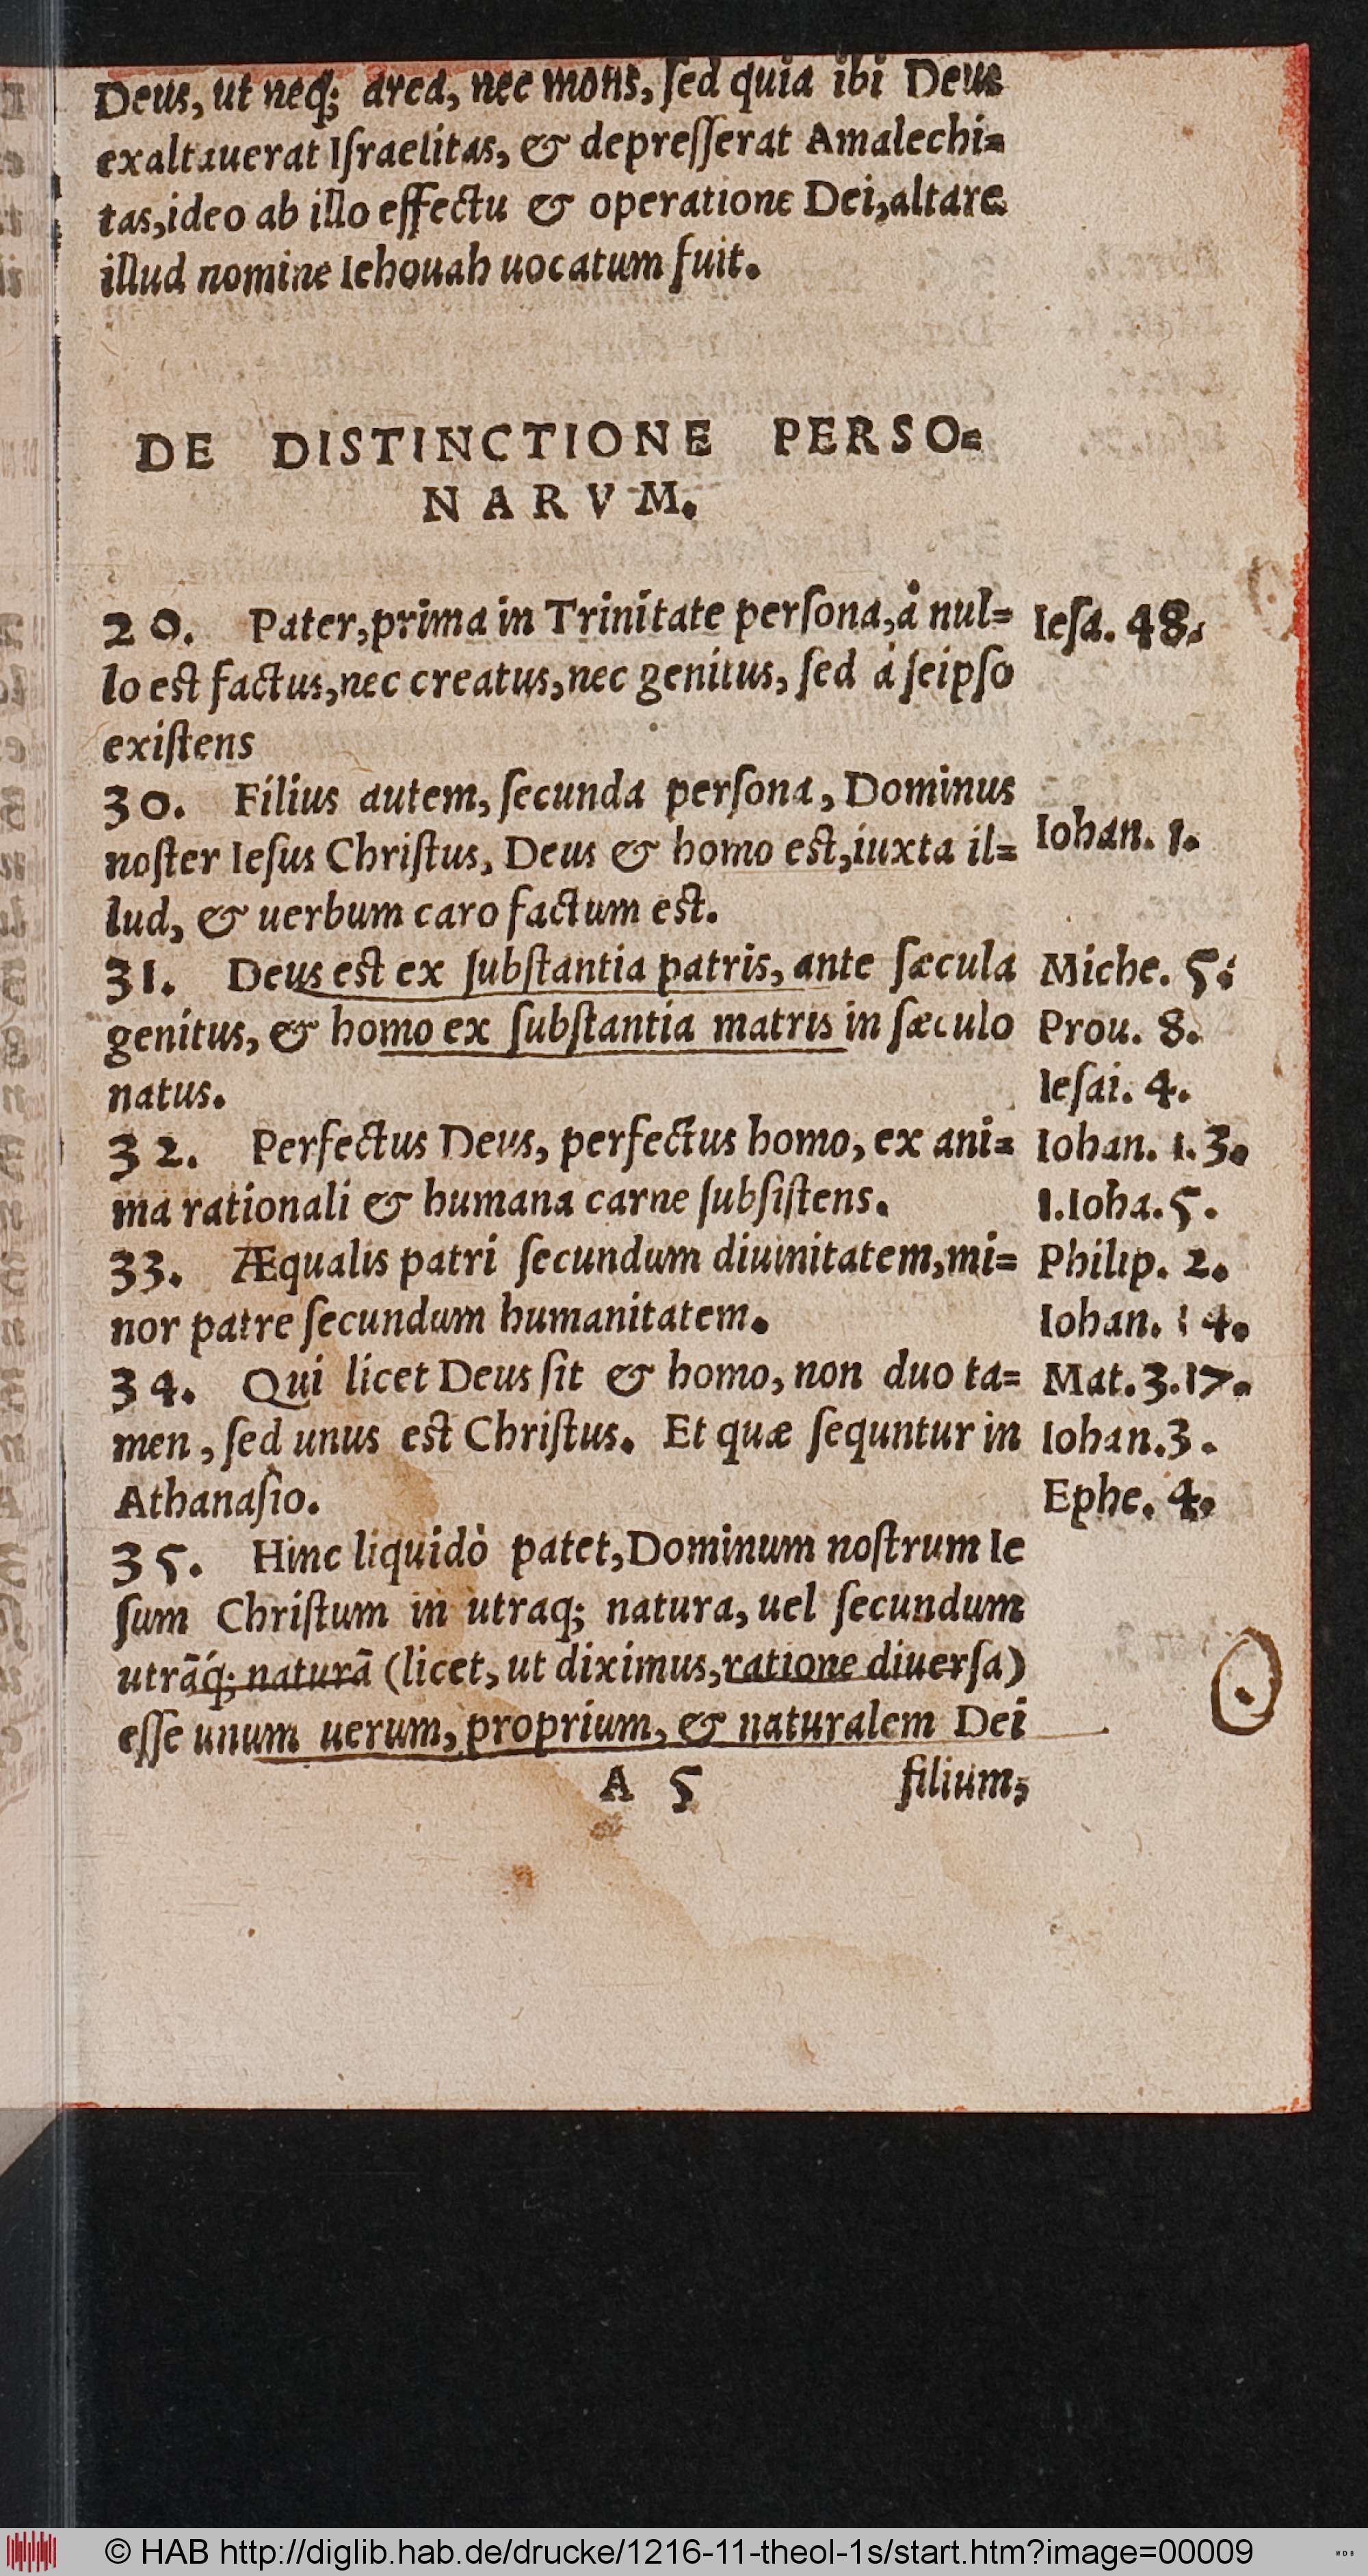 Deus, ut neq́; area, nec mons, ſed quia ibi Deus
exaltauerat Iſraelitas, & depreſſerat Amalechi=
tas, ideo ab illo effectu & operatione Dei, altare
illud nomine Iehouah uocatum fuit.
DE DISTINCTIONE PERSO=
NARVM.
20. Pater, prima in Trinitate perſona, à nul= Ieſa. 48.
lo est factus, nec creatus, nec genitus, ſed à ſeipſo
exiſtens
30. Filius autem, ſecunda perſona, Dominus
noſter Ieſus Chriſtus, Deus & homo est, iuxta il= Iohan. 1.
lud, & uerbum caro factum est.
31. Deus est ex ſubſtantia patris, ante ſæcula Miche. 5.
genitus, & homo ex ſubſtantia matris in ſæculo Prou. 8.
natus. Ieſai. 4.
32. Perfectus Deus, perfectus homo, ex ani= Iohan. 1. 3.
ma rationali & humana carne ſubſiſtens. 1. Ioha. 5.
33. Æqualis patri ſecundum diuinitatem, mi= Philip. 2.
nor patre ſecundum humanitatem. Iohan. 14.
34. Qui licet Deus ſit & homo, non duo ta= Mat. 3. 17.
men, ſed unus est Chriſtus. Et quæ ſequntur in Iohan. 3.
Athanaſio. Ephe. 4.
35. Hinc liquidò patet, Dominum noſtrum Ie
ſum Chriſtum in utraq; natura, uel ſecundum
utrãq́; naturã (licet, ut diximus, ratione diuerſa)
eſſe unum uerum, proprium, & naturalem Dei
A 5 filium,
© HAB http://diglib.hab.de/drucke/1216-11-theol-1s/start.htm?image=00009